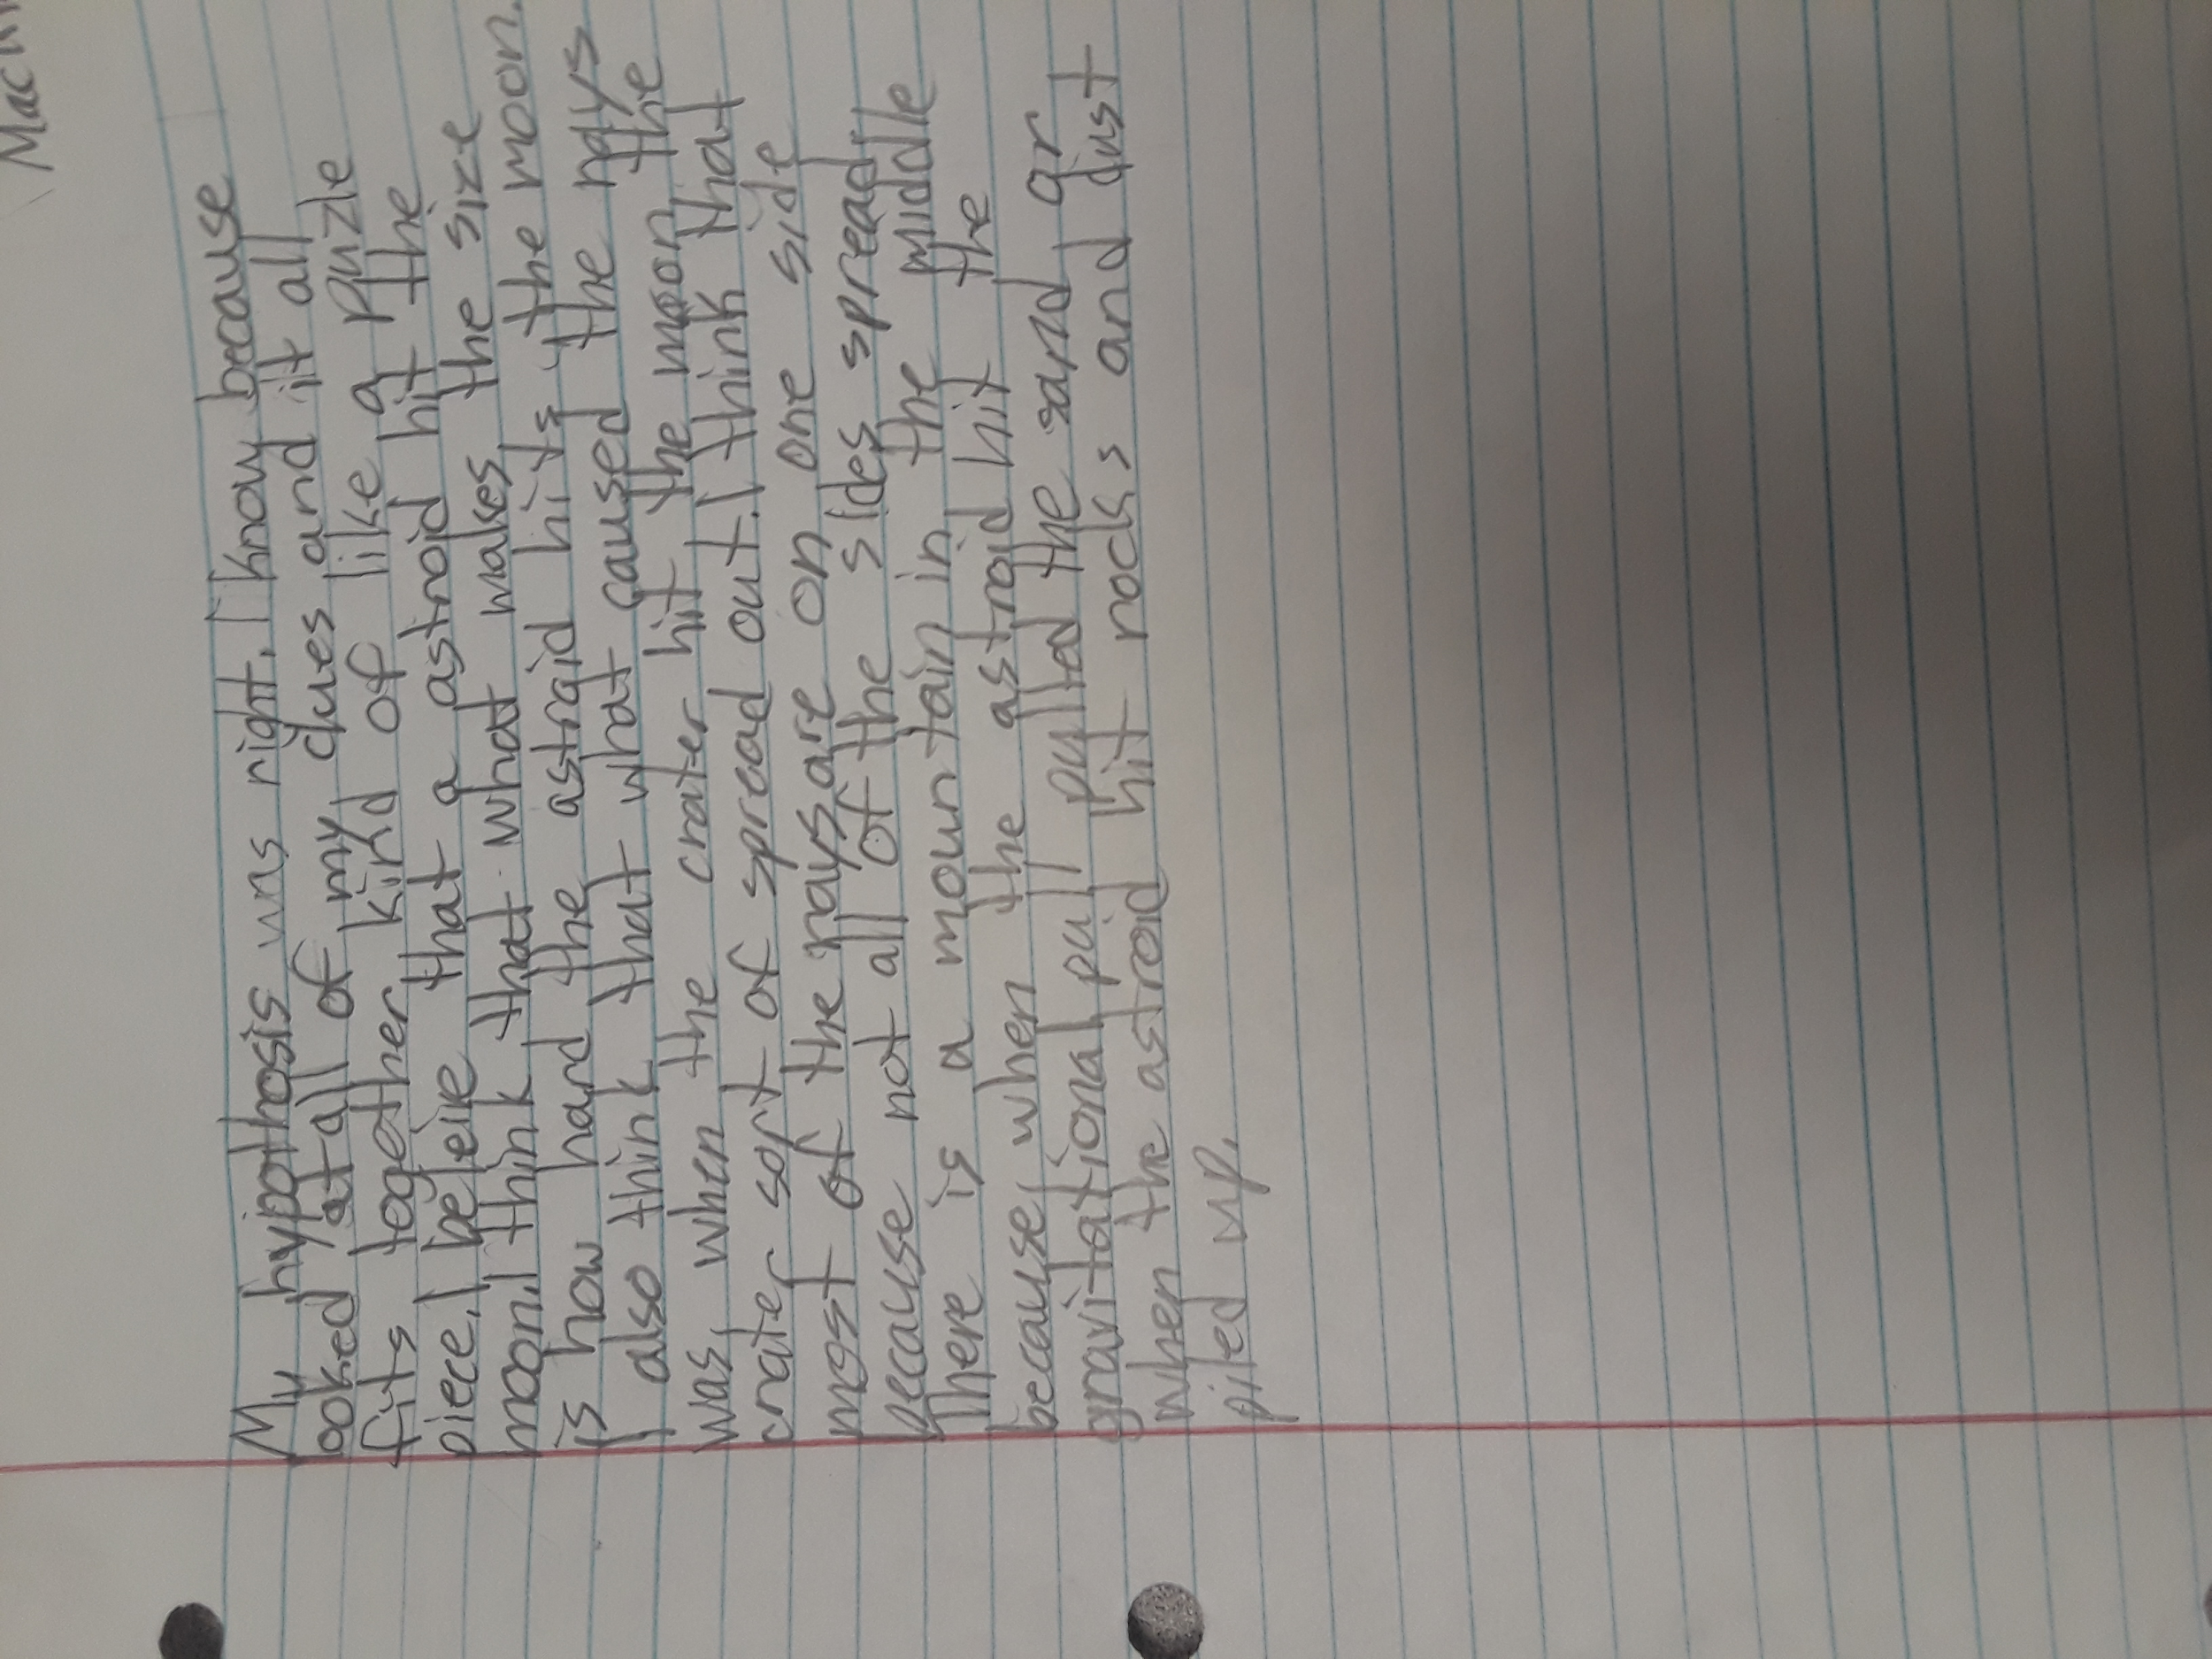 My hypothosis was right. I know because
looked at all of my clues and it all
fits together kind of like a puzzle
piece. I beleive that a astroid hit the
moon. I think that what makes the size
is how hard the astroid hits the moon.
I also think that what caused the rays
was, when the crater hit the moon the
crater sort of spread out. I think that
most of the rays are on one side
because not all of the sides spread
There is a mountain in the middle
because, when the astroid hit the
gravitational pull pulled the sand or
when the astroid hit rocks and dust
piled up.